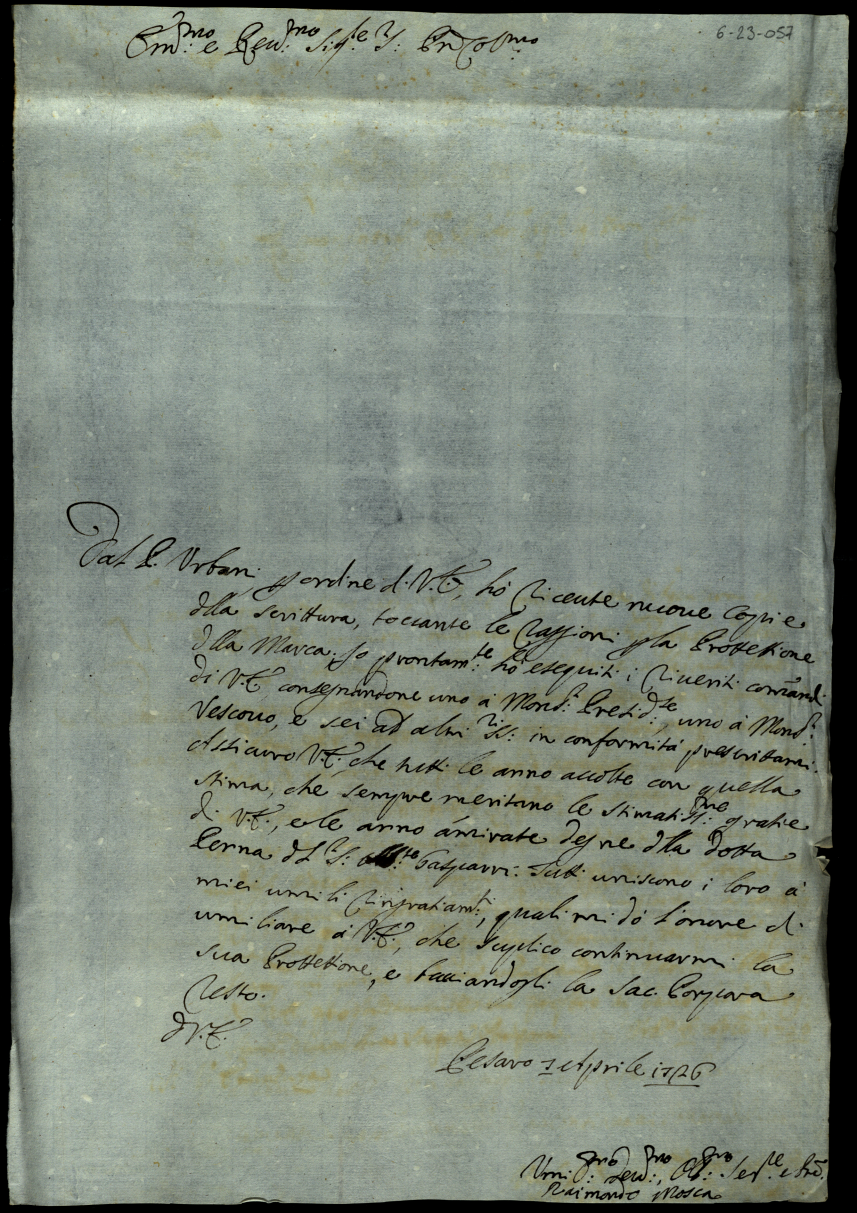 6-23-057
Em:mo e Rev:mo Sig:re S: Pne Col:mo
Dal P. Urbani p ordine di V.E., hò riceute nuove copie
dlla Scrittura, toccante le raggioni pla Protettione
dlla Marca. Io prontam:te hò eseguiti i riveriti comandi
di V.E. consegnandone uno à Mons:r Presid:te, uno à Mons:r
Vescovo, e sei ad altri SS:ri in conformità prescrittami.
Assicuro V.E., che tutti le anno accolte con quella
stima, che sempre meritano le stimatiss:me gratie
di V.E., e le anno ammirate degne dlla dotta
Penna dl S:r Gasparri. Tutti uniscono i loro a
miei umili ringratiam:ti, quali mi dò l'onore di
umiliare à V.E., che suplico continuarmi la
sua Protettione, e bacciandogli la Sac. Porpora
resto.
D V.E.
Pesaro 1 Aprile 1726
Umi:mo Dev:mo, Ob:mo Ser:re
Raimondo Mosca